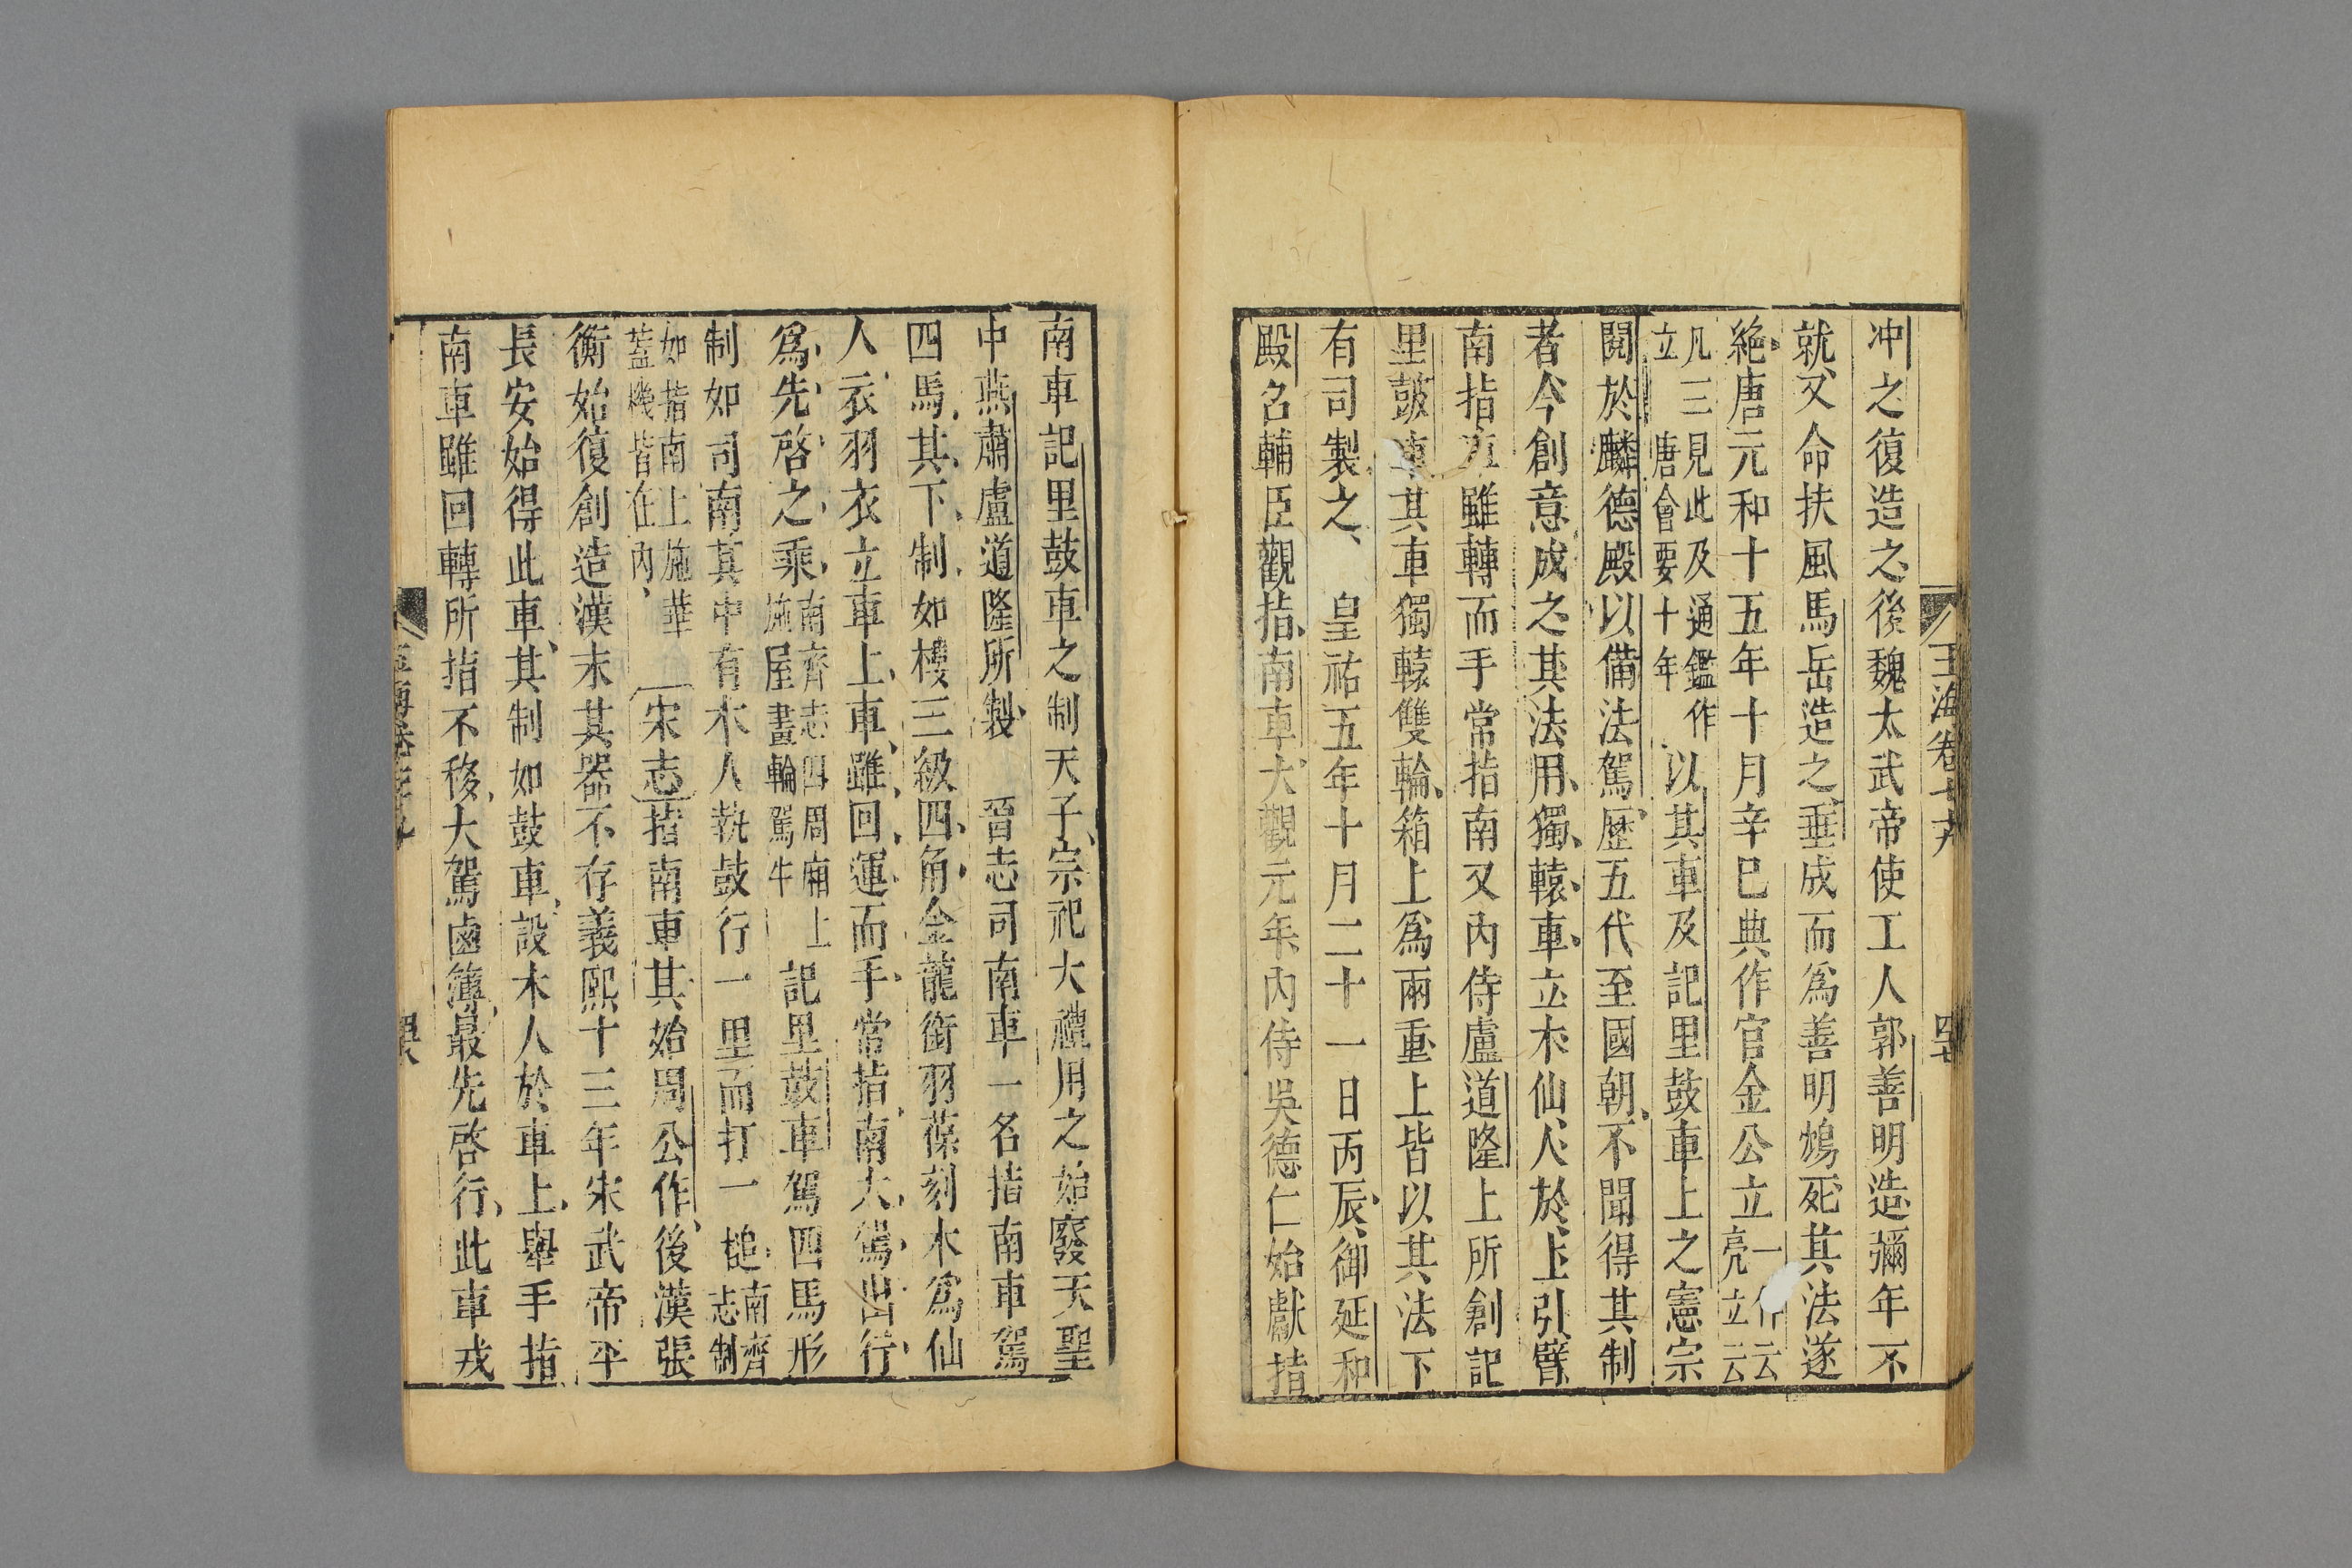 玉海卷七十九
冲之復造之後魏太武帝使工人郭善明造彌年不
就又命扶風馬岳造之垂成而爲善明鴆死其法遂
絶唐元和十五年十月辛巳典作官金公立一作云亮立云
凡三見此及通鑑作立唐會要十年以其車及記里鼓車上之憲宗
閱於麟德殿以備法駕歷五代至國朝不聞得其制
者今創意成之其法用獨轅車立木仙人於上引臂
南指車雖轉而手常指南又內侍盧道隆上所創記
里鼓車其車獨轅雙輪箱上爲兩重上皆以其法下
有司製之皇祐五年十月二十一日丙辰御延和
殿名輔臣觀指南車大觀元年內侍吳德仁始獻指
南車記里鼓車之制天子宗祀大禮用之始廢天聖
中燕肅盧道隆所製晉志司南車一名指南車駕
四馬其下制如樓三級四角金龍銜羽葆刻木爲仙
人衣羽衣立車上車雖回運而手常指南大駕出行
爲先啓之乘南齊志四周廂上施屋畫輪駕牛記里鼓車駕四馬形
制如司南其中有木人執鼓行一里而打一槌南齊志制
如指南上施華蓋機皆在內宋志指南車其始周公作後漢張
衡始復創造漢末其器不存義熙十三年宋武帝平
長安始得此車其制如鼓車設木人於車上舉手指
南車雖回轉所指不移大駕鹵簿最先啓行此車戎